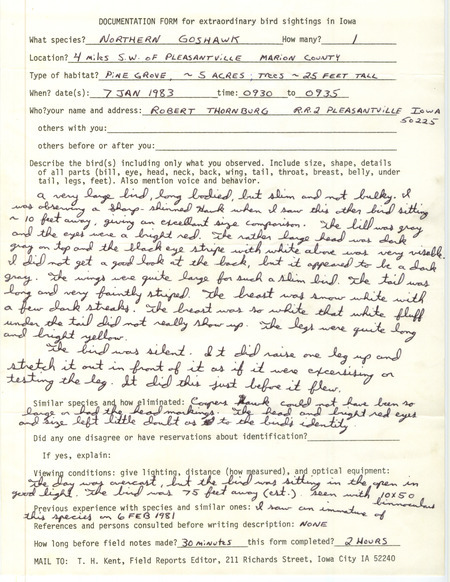 DOCUMENTATION FORM for extraordinary bird sightings in Iowa
What species? NORTHERN GOSHAWK How many? 1
Location? 4 miles S.W. of PLEASANTVILLE MARION COUNTY
Type of habitat? PINE GROVE, ~ 5 ACRES; TREES ~ 25 FEET TALL
When? date(s): 7 JAN 1983 time: 0930 to 0935
Who?your name and address: ROBERT THORNBURG R.R.2 PLEASANTVILLE IOWA
50225
others with you:
others before or after you:
Describe the bird(s) including only what you observed. Include size, shape, details
of all parts (bill, eye, head, neck, back, wing, tail, throat, breast, belly, under
tail, legs, feet). Also mention voice and behavior.
A very large bird, long bodied, but slim and not bulky. I
was observing a sharp-shinned Hawk when I saw this other bird sitting
~ 10 feet away, giving an excellant size comparison. The bill was gray
and the eyes were a bright red. The rather large head was dark
gray on top and the black eye stripe with white above was very visable.
I did not get a good look at the back, but it appeared to be a dark
gray. The wings were quite large for such a slim bird. The tail was
long and very faintly striped. The breast was snow white with
a few dark streaks. The breast was so white that white fluff
under the tail did not really show up. The legs were quite long
and bright yellow.
The bird was silent. It did raise one leg up and
stretch it out in front of it as if it were excersising or
testing the leg. It did this just before it flew.
Similar species and how eliminated: Coopers Hawk could not have been so
large or had the head markings. The head and bright red eyes
and size left little doubt as to the bird's identity.
Did any one disagree or have reservations about identification?
If yes, explain:
Viewing conditions: give lighting, distance (how measured), and optical equipment:
The day was overcast, but the bird was sitting in the open in
good light. The bird was 75 feet away (est.). Seen with 10x50
binoculars
Previous experience with species and similar ones: I saw an immature of
this species on 6 FEB 1981
References and persons consulted before writing description: NONE
How long before field notes made? 30 minutes this form completed? 2 HOURS
MAIL TO: T. H. Kent, Field Reports Editor, 211 Richards Street, Iowa City IA 52240